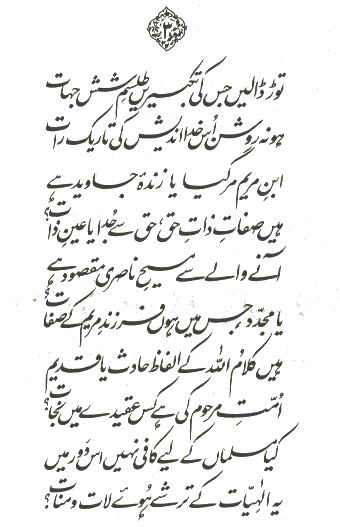 ۳
توڑ ڈالیں جس کی تکبیریں طلسمِ شش جہات
ہو نہ روشن اُس خدا اندیش کی تاریک رات
ابنِ مریم مر گیا یا زندۂ جاوید ہے
ہیں صفاتِ ذاتِ حق، حق سے جُدا یا عینِ ذات؟
آنے والے سے مسیحِ ناصری مقصود ہے
یا مجدّد، جس میں ہوں فرزندِ مریم کے صفات؟
ہیں کلامُ اللہ کے الفاظ حادث یا قدیم
اُمّتِ مرحوم کی ہے کس عقیدے میں نجات؟
کیا مسلماں کے لیے کافی نہیں اس دَور میں
یہ الٰہیّات کے ترشے ہُوئے لات و منات؟